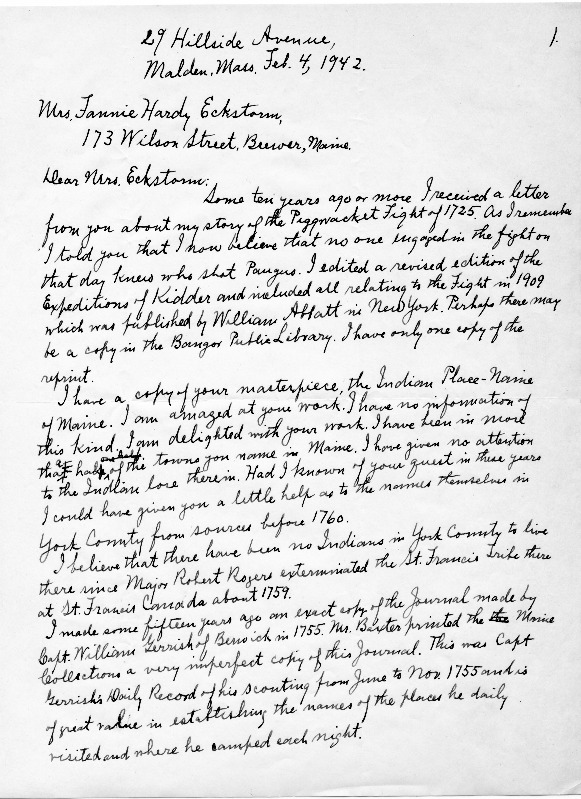 1.
29 Hillside Avenue,
Malden, Mass. Feb. 4, 1942.
Mrs. Fannie Hardy Eckstorm,
173 Wilson Street, Brewer, Maine.
Dear Mrs. Eckstorm:
Some ten years ago or more I received a letter
from you about my story of the Piggwacket Fight of 1725. As I remember
I told you that I now believe that no one ingaged in the fight on
that day knew who shot Paugus. I edited a revised edition of the
Expeditions of Kidder and included all relating to the Fight in 1909
which was published by William Abbatt in New York. Perhaps there may
be a copy in the Bangor Public Library. I have only one copy of the
reprint.
I have a copy of your masterpiece, the Indian Place-Name
of Maine. I am amazed at your work. I have no information of
this kind. I am delighted with your work. I have been in more
than half of the towns you name in Maine. I have given no attention
to the Indian lore therein. Had I known of your quest in these years
I could have given you a little help as to the names themselves in
York County from sources before 1760.
I believe that there have been no Indians in York County to live
there since Major Robert Rogers exterminated the St. Francis Tribe there
at St. Francis Canada about 1759.
I made some fifteen years ago an exact copy of the Journal made by
Capt. William Gerrish of Berwick in 1755. Mr. Baxter printed the the Maine
Collections a very imperfect copy of this Journal. This was Capt
Gerrish's Daily Record of his scouting from June to Nov. 1755 and is
of great value in establishing the names of the places he daily
visited and where he camped each night.